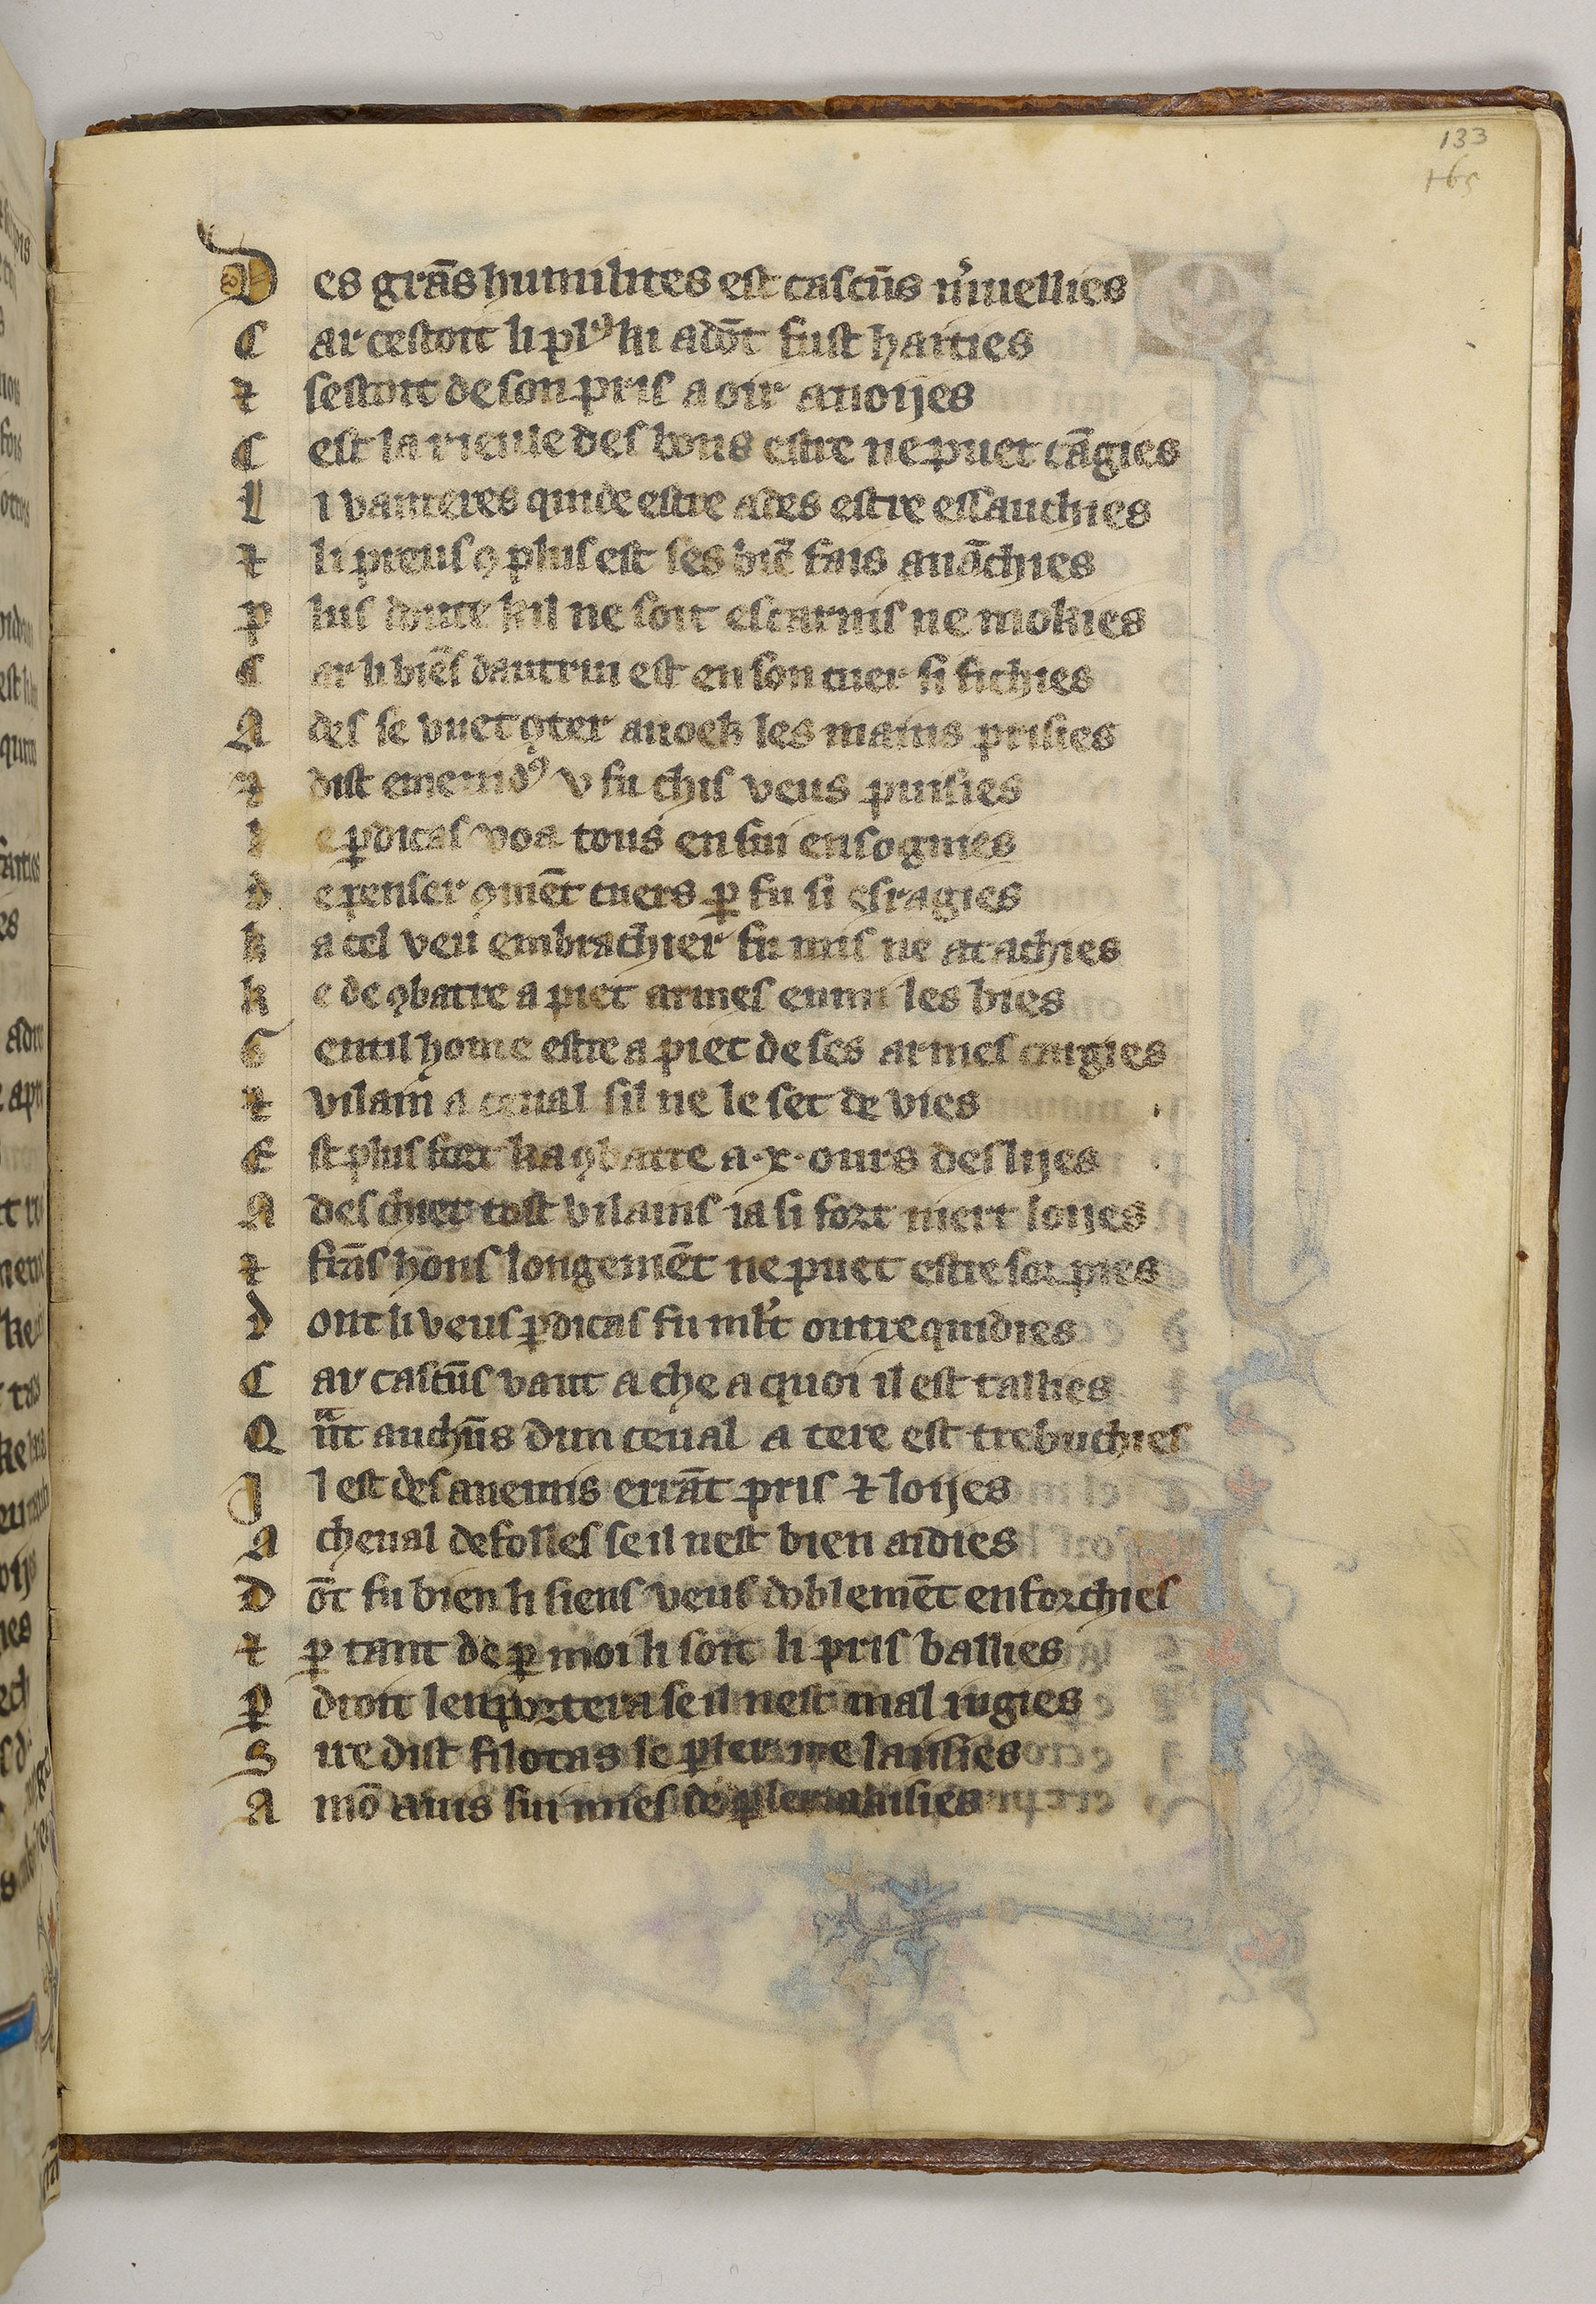 133
165
Des grãs humilites est cascũs m̉uellies
Car cestoit li plꝰ ki adõt fust haities
⁊ sestoit de son pris a oir anoijes
Cest la rieule des bons estre ne puet cãgies
Li vanteres quide estre ades estre essauchies
⁊ li preus ꝯ plus est ses biẽ fais auãchies
Plus doute kil ne soit escarnis ne mokies
Car li biẽs dautrui est en son cuer si fichies
Ades se vuet ꝯter auoek les mains prisies
⁊ dist emenidꝰ v fu chis veus puisies
ke ꝑdicas voa tous en sui ensognies
de penser ꝯmẽt cuers ꝑ fu si esragies
ka tel veu embrachier fu mis ne atachies
ke de ꝯbatre a piet armes enmi les bies
Gentil home estre a piet de ses armes cargies
⁊ vilain a ceual sil ne le set de vies
Est plus fort ka ꝯbatre a .x. ours deslijes
Ades chiet tost vilains ia si fort niert loijes
⁊ frãs hons longemẽt ne puet estre sor pies
dont li veus ꝑdicas fu ml̉t outrequidies
Car cascũs vaut a che a quoi il est tallies
Qãt auchũs dun ceual a tere est trebuchies
Il est des anemis errãt pris ⁊ loijes
A cheual defolles se il nest bien aidies
Dõt fu bien li siens veus doblemẽt enforchies
⁊ ꝑ tant de ꝑ moi li soit li pris ballies
ꝑ droit lenportera se il nest mal iugies
Sire dist filotas le ꝑler me laisies
A mõ auis sui mies de ꝑler aaisies